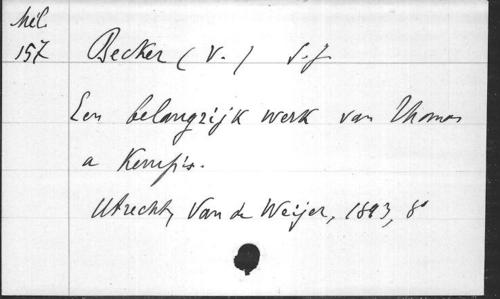 Mél.
157 Becker (V.) S.J.
Een belangrijk werk van Thomas
a Kempis.
Utrecht, Van de Weijer, 1893, 8°